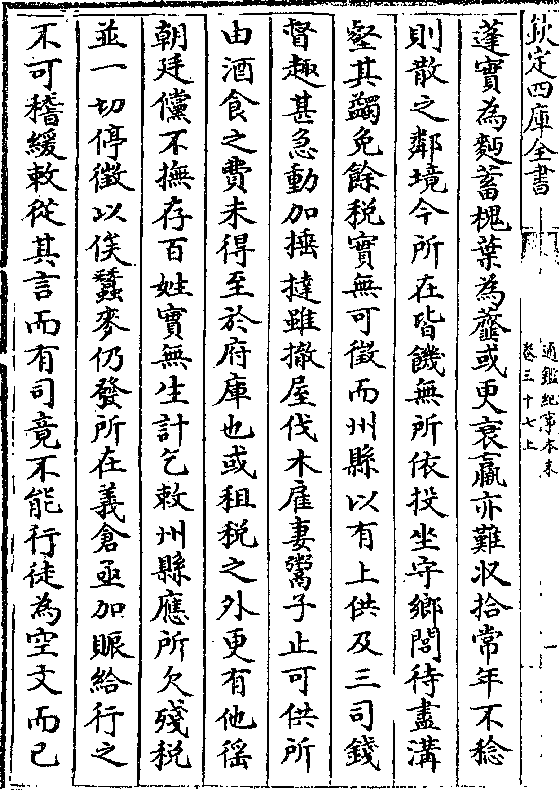 欽定四庫全書
通鑑紀事本末
卷三十七上
一
蓬實為麪蓄槐葉為虀或更衰羸亦難収拾常年不稔
則散之鄰境今所在皆饑無所依投坐守鄉閭待盡溝
壑其蠲免餘税實無可徵而州縣以有上供及三司錢
督趣甚急動加捶撻雖撤屋伐木雇妻鬻子止可供所
由酒食之費未得至於府庫也或租税之外更有他徭
朝廷儻不撫存百姓實無生計乞敕州縣應所欠殘税
並一切停徵以俟蠶麥仍發所在義倉亟加賑給行之
不可稽緩敕從其言而有司竟不能行徒為空文而已